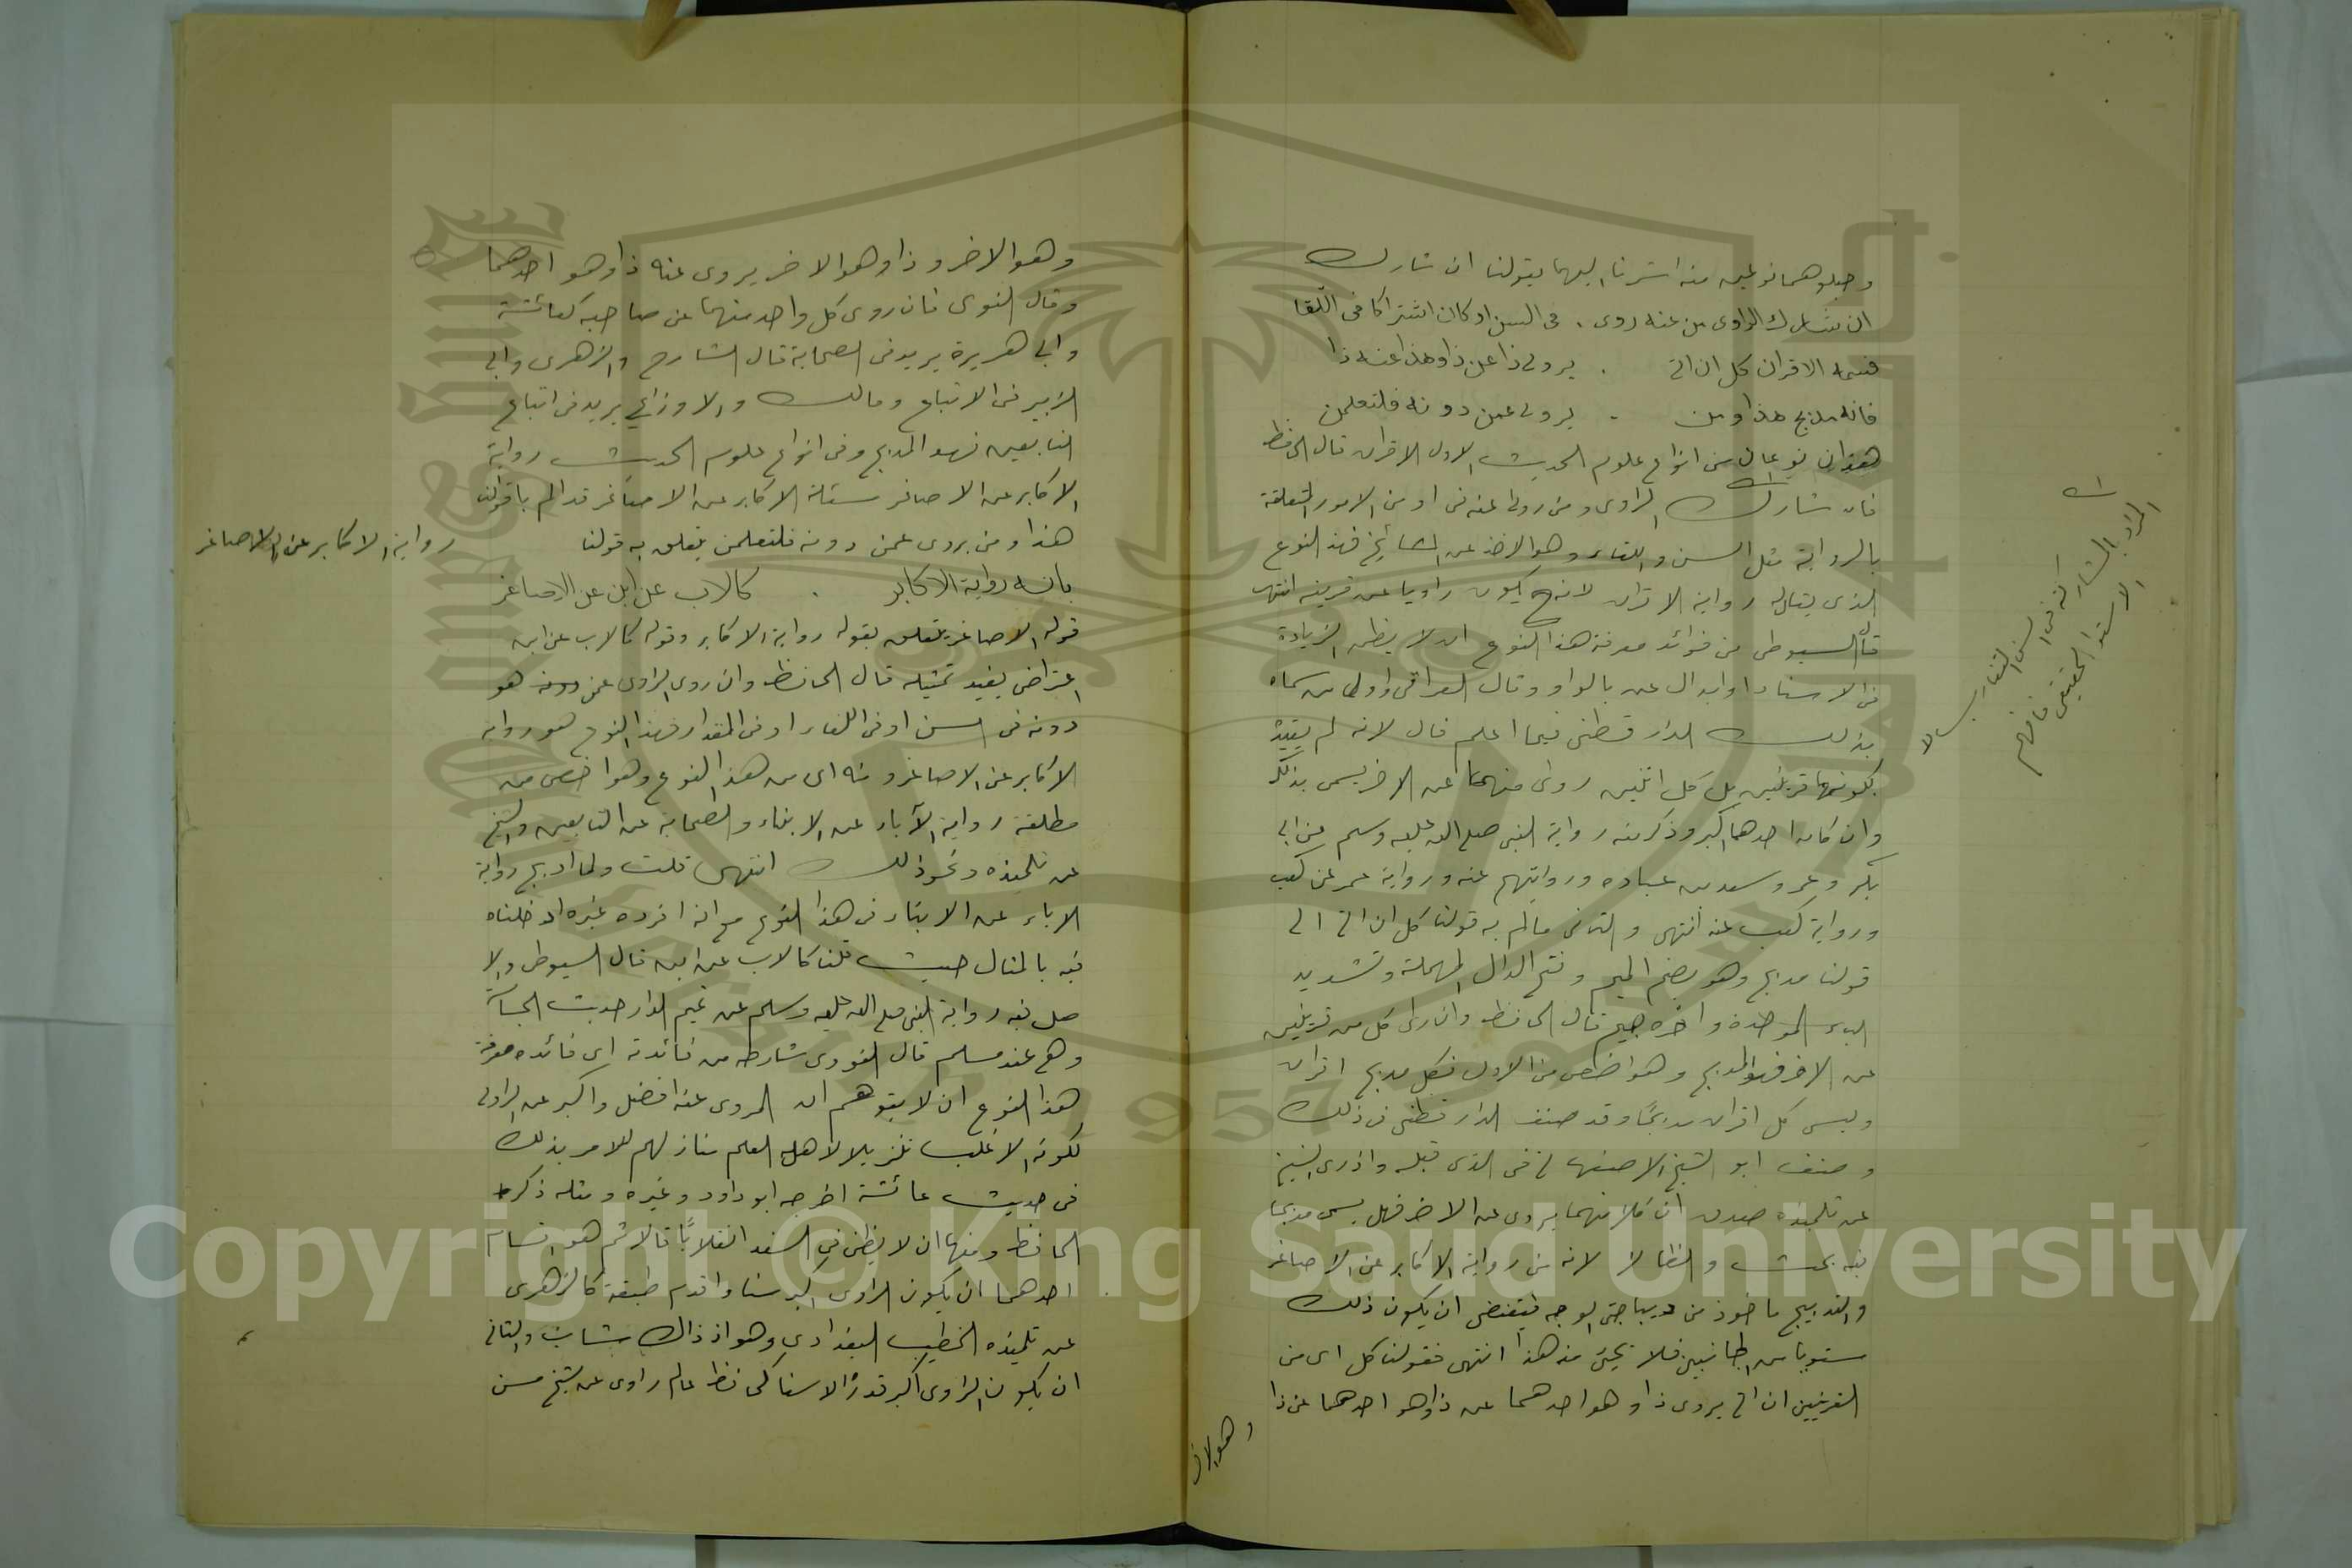 وجعلوهما نوعين منه اشرنا اليهما بقولنا ان شارك
ان شارك الراوى من عنه روى . فى السن او كان اشتراكا فى اللقا
فسمه الاقران كل ان اتى . يروى ذا عن ذا وهذا عنه ذا
فانه مدبج هذا ومن . يروى عمن دونه فلتعلمن
هذان نوعان من انواع علوم الحديث الاول الاقران قال الحافظ
فان شارك الراوى ومن روى عنه فى امر من الامور المتعلقة
بالرواية مثل السن واللقاء وهو الاخذ عن المشائخ فهذا النوع
الذى يقال له رواية الاقران لانه ح يكون راويا عن قرينه انتهى
قال السيوطى من فوائد معرفة هذا النوع ان لا يظن الزيادة
فى الاسناد او ابدال عن بالواو وقال العراقى واول من سماه
بذلك الدارقطنى فيما اعلم قال لانه لم يقيده
بكونهما قرينين بل كل اثنين روى منهما عن الاخر يسمى بذلك
وان كان احدهما اكبر وذكر منه رواية النبى صلى الله عليه وسلم عن ابى
بكر وعمر وسعد بن عباده وروايتهم عنه ورواية عمر عن كعب
ورواية كعب عنه انتهى والثانى مالم به قولنا كل ان اتى الى
قولنا مدبج وهو بضم الميم وفتح الدال المهملة وتشديد
الباء الموحدة واخره جيم قال الحافظ وان روى كل من قرينين
عن الاخر فهو المدبج وهو اخص من الاول فكل مدبج اقران
وليس كل اقران مدبجًا وقد صنف الدارقطنى فى ذلك
وصنف ابو الشيخ الاصفهانى فى الذى قبله واذا روى الشيخ
عن تلميذه صدق ان كلا منهما يروى عن الاخر فهل يسمى مدبجا
فيه بحث والظاهر لا لانه من رواية الاكابر عن الاصاغر
والتدبيج ماخوذ من ديباجتى الوجه فيقتضى ان يكون ذلك
مستويا من الجانبين فلا يجئ منه هذا انتهى فقولنا كل اى من
القرينين ان اتى يروى ذا وهو احدهما عن ذا وهو احدهما عن ذا
وهو الاخر
المراد بالمشاركة فى السن التقارب لا
الاستوا الحقيقى فافهم
وهو الاخر وذا وهو الاخر يروى عنه ذا وهو احدهما
وقال النووى فان روى كل واحد منهما عن صاحبه كعائشة
وابى هريرة يريد فى الصحابة قال الشارح والزهرى وابى
الزبير فى الاتباع ومالك والاوزاعى يريد فى اتباع
التابعين فهو المدبج وفى انواع علوم الحديث رواية
الاكابر عن الاصاغر مسئلة الاكابر عن الاصاغر قد الم بها قولنا
هذا ومن يروى عمن دونه فلتعلمن يتعلق به قولنا
بانه رواية الاكابر . كالاب عن ابن عن الاصاغر
قوله الاصاغر يتعلق بقوله رواية الاكابر وقوله كالاب عن ابن
اعتراض يفيد تمثيله قال الحافظ وان روى الراوى عن دونه هو
دونه فى السن او فى اللقاء او فى المقدار فهذا النوع هو رواية
الاكابر عن الاصاغر ومنه اى من هذا النوع وهو اخص من
مطلقه رواية الآباء عن الابناء والصحابة عن التابعين والشيخ
عن تلميذه ونحو ذلك انتهى قلت ولما ادبج رواية
الاباء عن الابناء فى هذا النوع مع انه افرده غيره ادخلناه
فيه بالمثال حيث قلنا كالاب عن ابن قال السيوطى والا
صل فيه رواية النبى صلى الله عليه وسلم عن تميم الدارى حديث الجساسة
وهى عند مسلم قال النووى شارطه من فائدته اى فائده معرفة
هذا النوع ان لا يتوهم ان المروى عنه افضل واكبر عن الراوى
لكونه الاغلب تنزيلا لاهل العلم منازلهم للامر بذلك
فى حديث عائشة اخرجه ابو داود وغيره ومثله ذكره
الحافظ ومنها ان لا يظن فى السند انقلابًا قالا ثم هو اقسام
احدهما ان يكون الراوى اكبر سنا واقدم طبقة كالزهرى
عن تلميذه الخطيب البغدادى وهو اذ ذاك شاب والثانى
ان يكون الراوى اكبر قدرًا لا سنا كحافظ عالم راوى عن شيخ مسن
رواية الاكابر عن الاصاغر
Copyright © King Saud University
1957